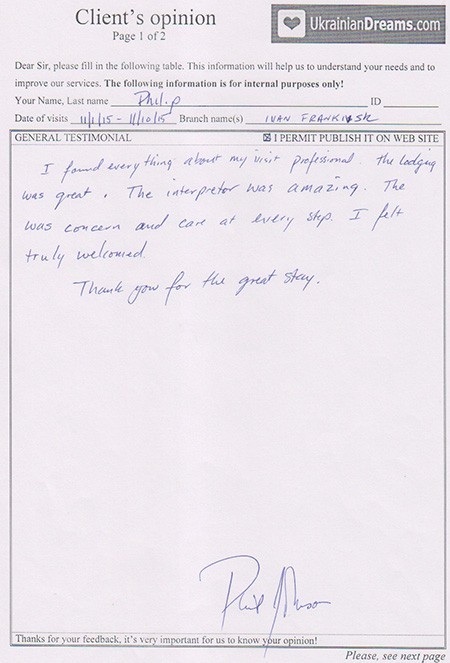 Client's opinion
Page 1 of 2
UkrainianDreams.com
Dear Sir, please fill in the following table. This information will help us to understand your needs and to
improve our services. The following information is for internal purposes only!
Your Name, Last name Philip ID
Date of visits 11/1/15 - 11/10/15 Branch name(s) IVAN FRANKIVSK
GENERAL TESTIMONIAL I PERMIT PUBLISH IT ON WEB SITE
I found everything about my visit professional. The lodging
was great. The interpretor was amazing. The
was concern and care at every step. I felt
truly welcomed.
Thank you for the great stay.
Phil
Thanks for your feedback, it's very important for us to know your opinion!
Please, see next page